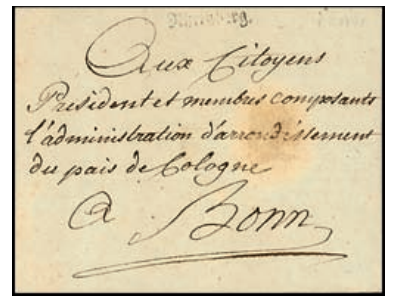 Aux Citoyens
Président et membres composants
l'administration d'arrondissement
du païs de Cologne
a Bonn